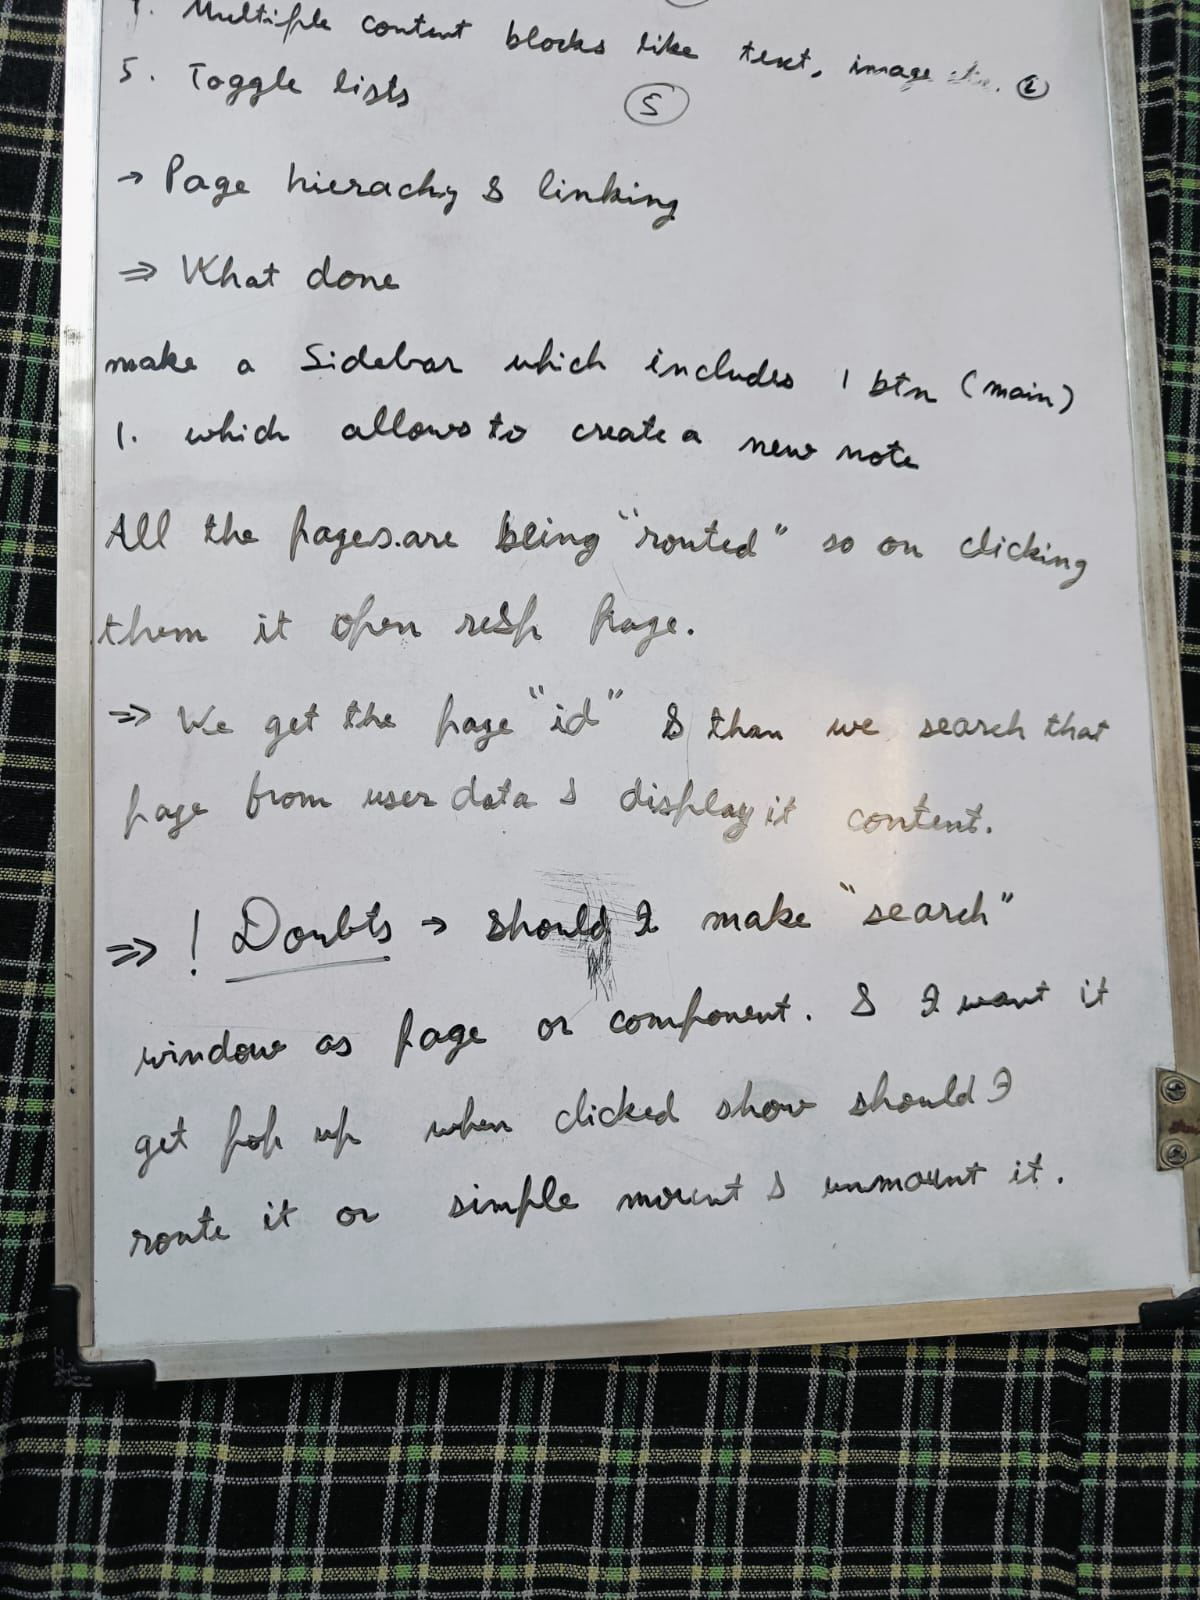 4. Multiple content blocks like text, image etc. 6
5. Toggle lists 5
→ Page hierachy & linking
⇒ What done
make a Sidebar which includes 1 btn (main)
1. which allows to create a new note
All the pages are being "routed" so on clicking
them it open resp page.
⇒ We get the page "id" & than we search that
page from user data & display it content.
⇒ ! Doubts → should I make "search"
window as page or component. & I want it
get pop up when clicked show should I
route it or simple mount & unmount it.